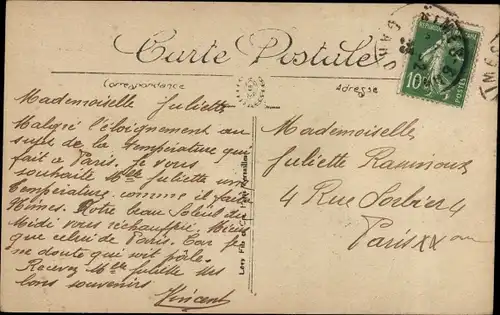 Carte Postale
Correspondance
Adresse
10
POSTES
Mademoiselle Juliette
Malgré l'éloignement au
sujet de la température qui
fait à Paris. Je vous
souhaite Melle Juliette une
Température comme il fait
Nîmes. Notre beau Soleil du
Midi vous réchauffrie Mieux
que celui de Paris. Car je
me doute qui soit pâle.
Recevez Melle Juliette mes
bons souvenirs
Vincent
Lévy Fils et Cie
Mademoiselles
Juliette
4 Rue Sorbier 4
Paris XX